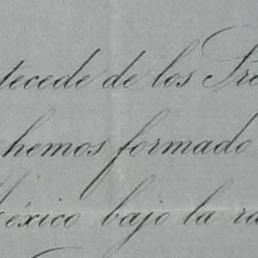 tecede de los Pre
hemos formado
éxico bajo la ra